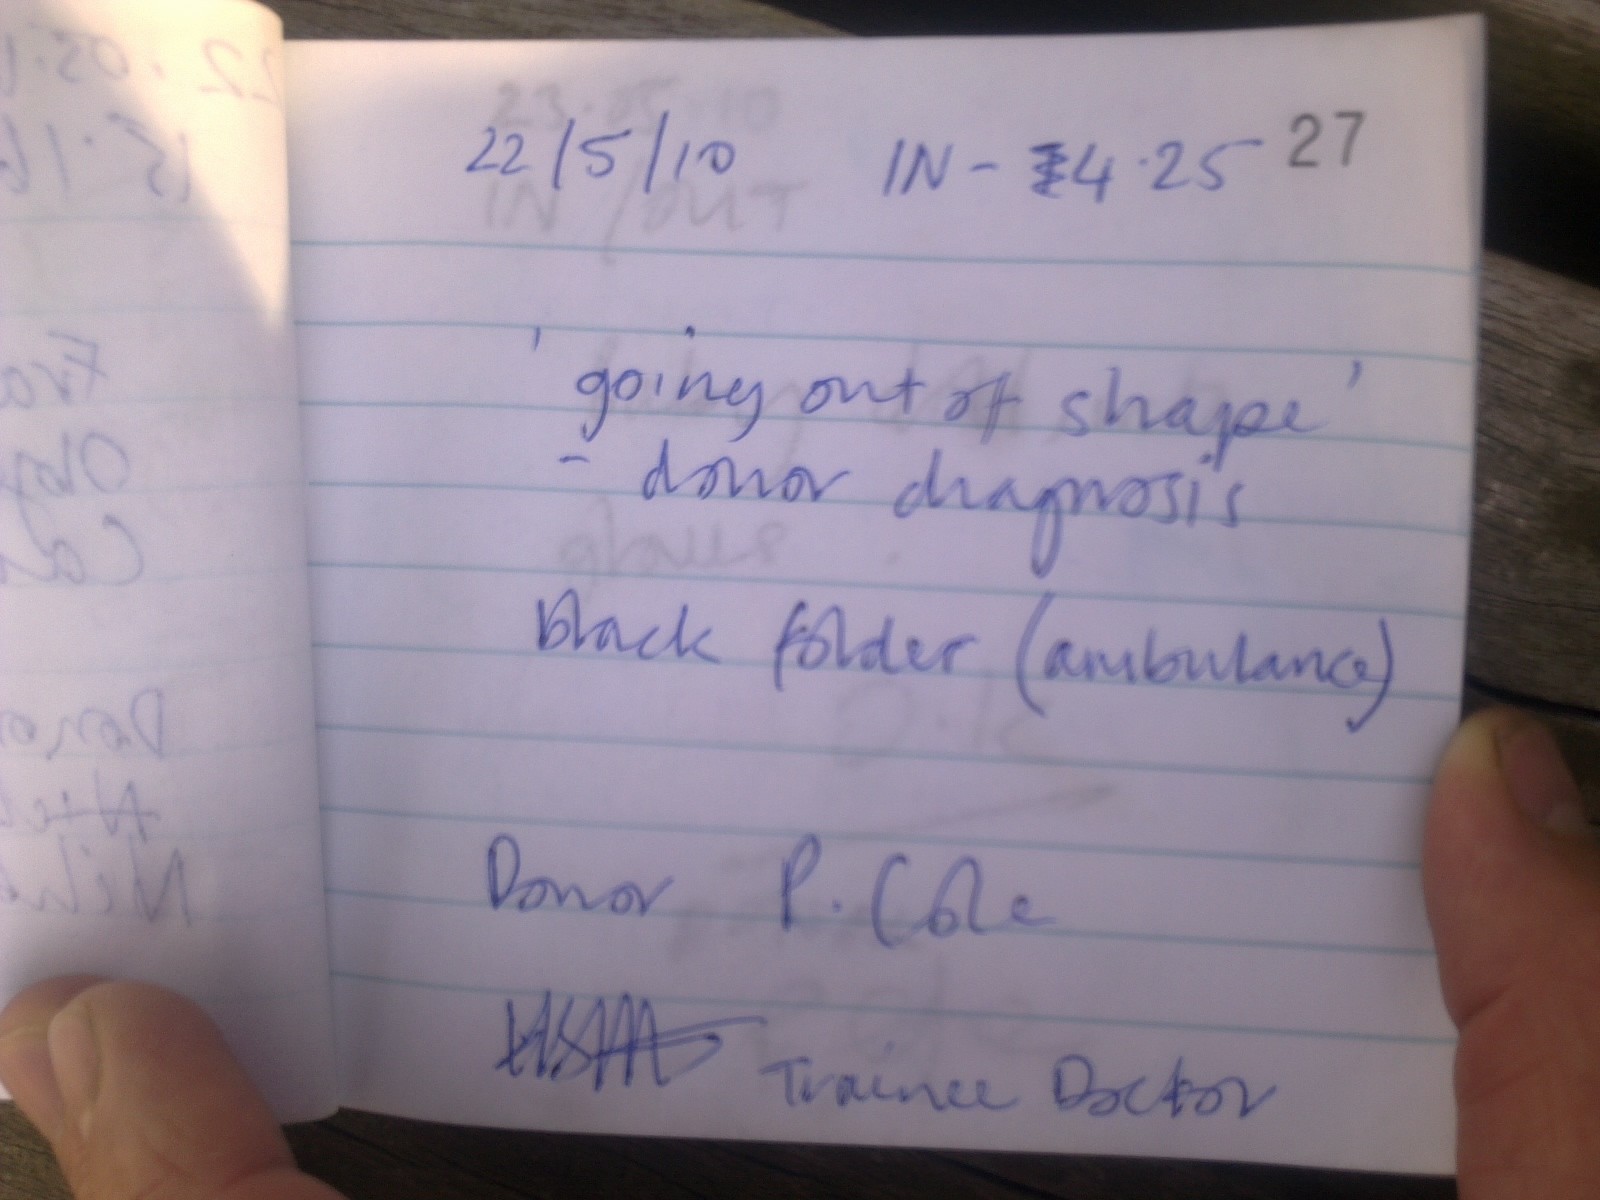 22/5/10 IN - 4.25 27
'going out of shape'
- donor diagnosis
black folder (ambulance)
Donor P. Cole
Trainee Doctor
23.05.10
IN/OUT